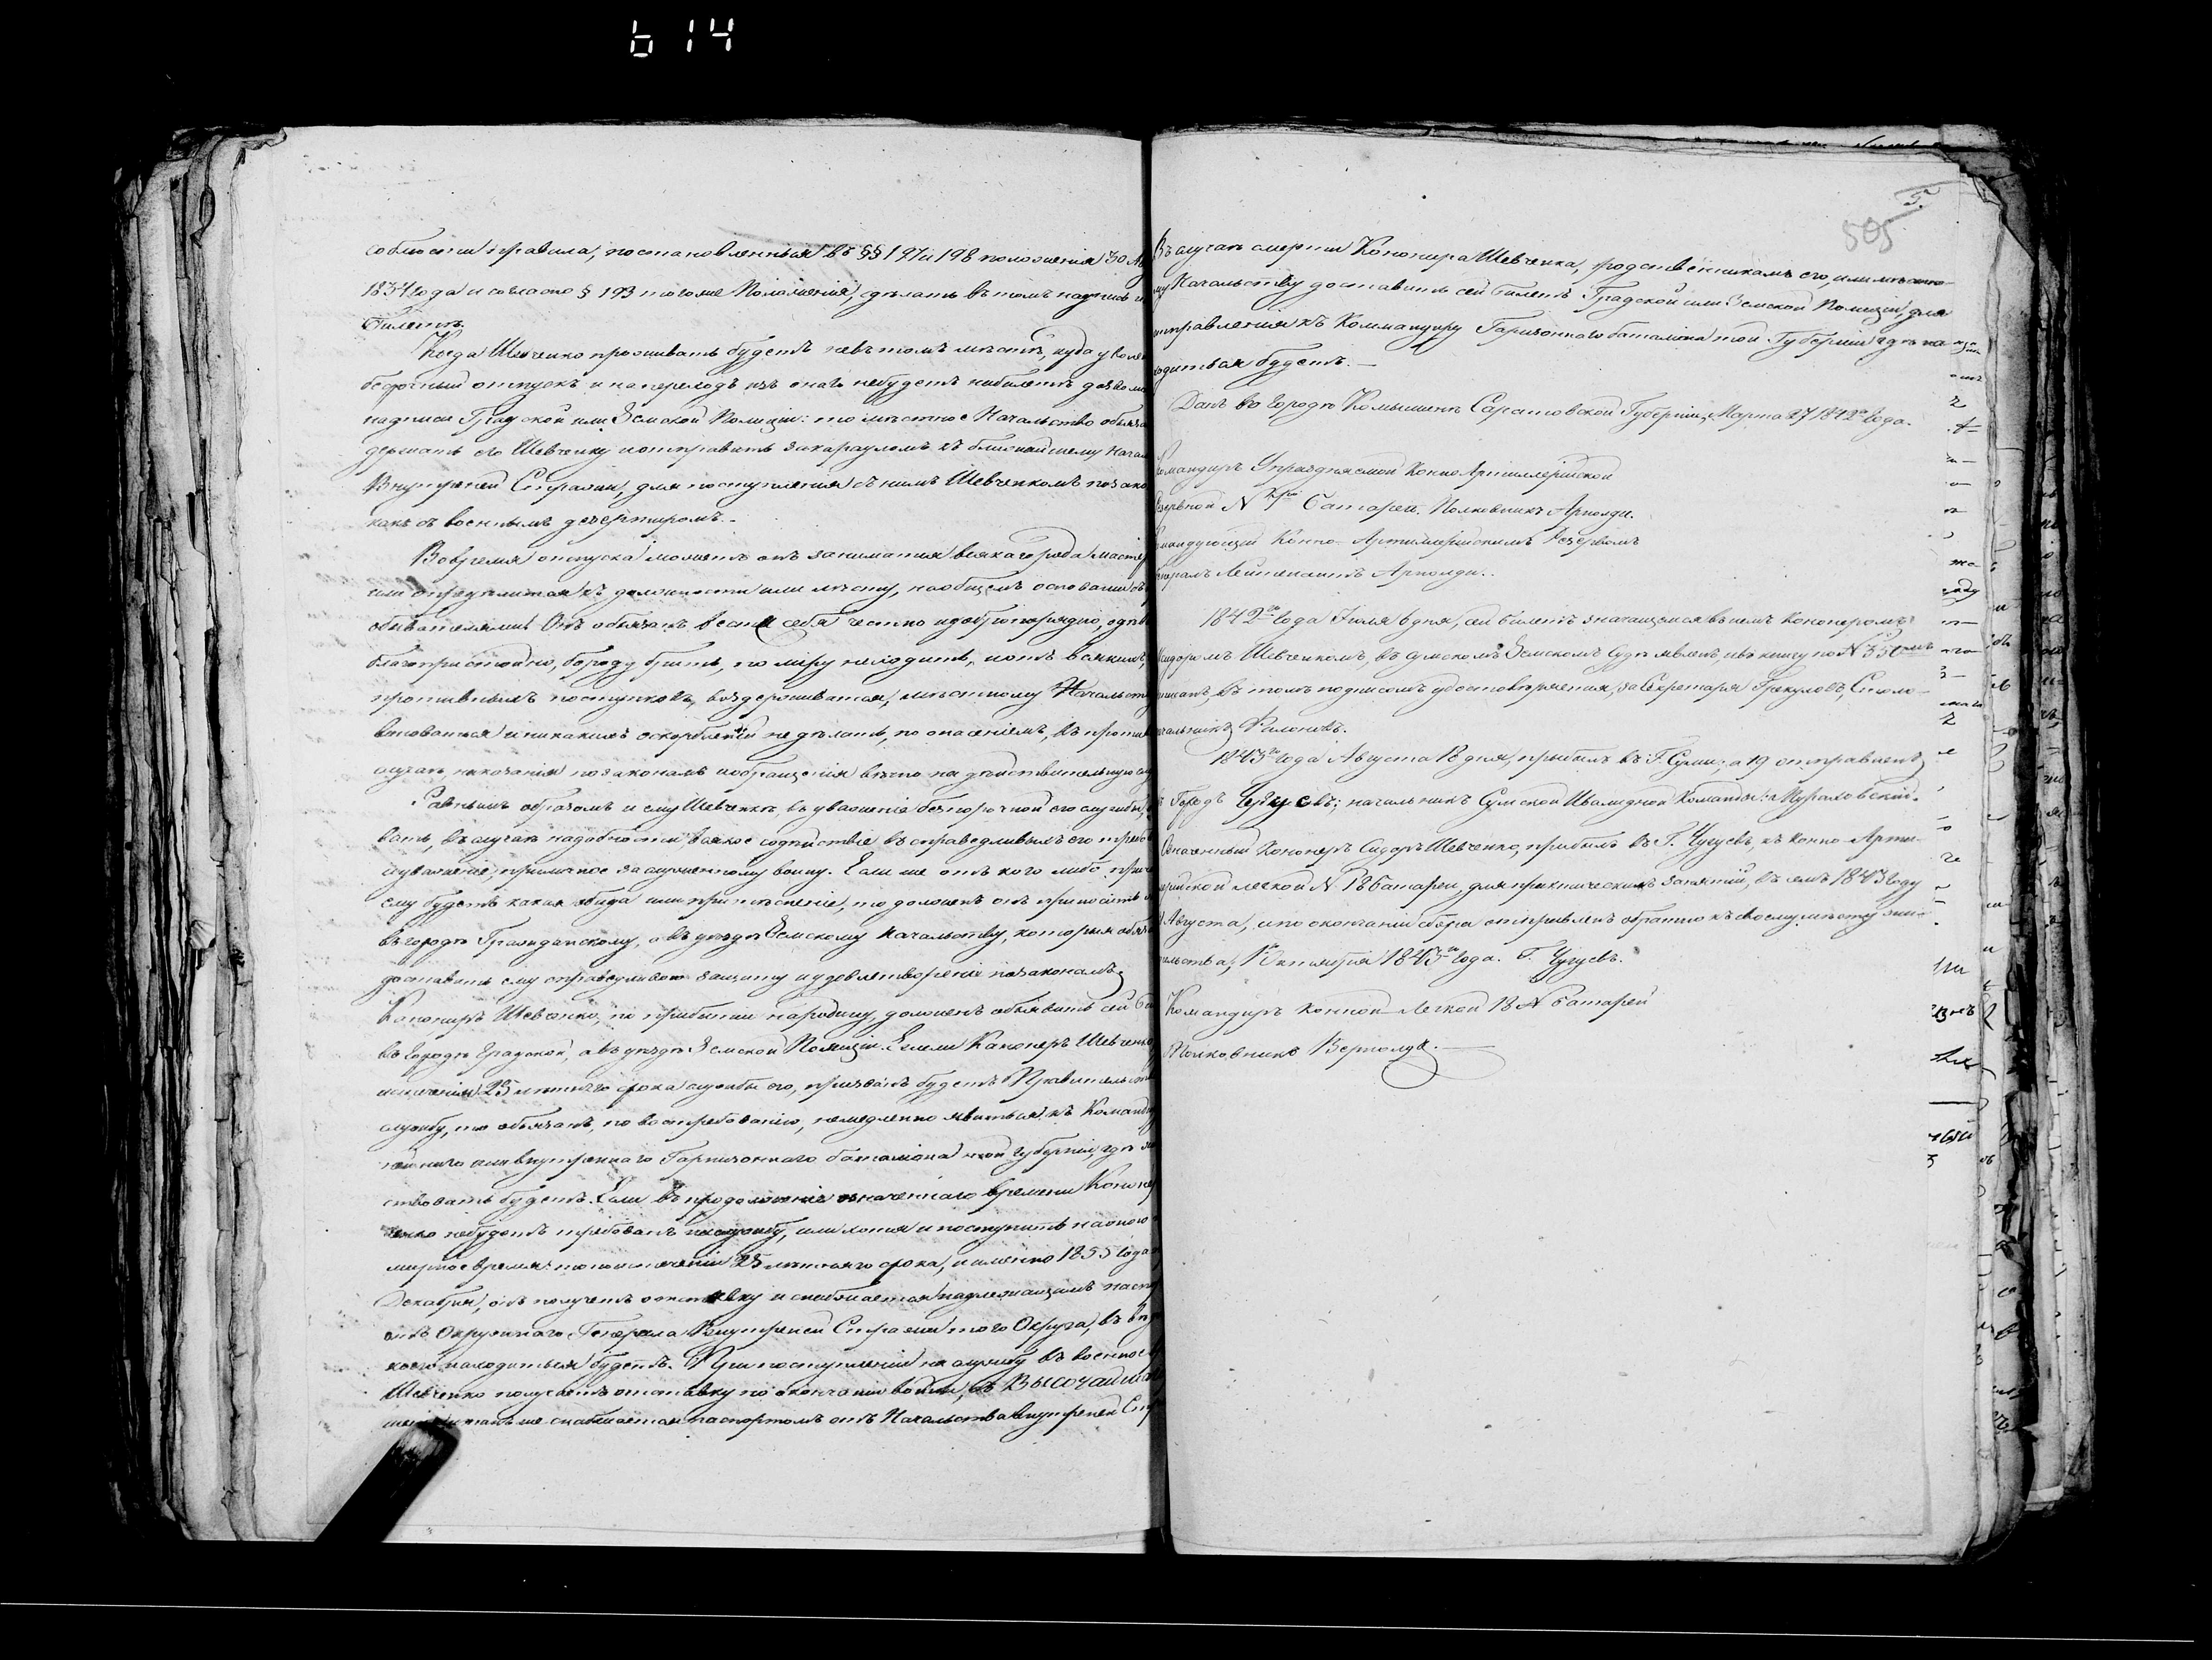 614
соблюсти правила, постановленныя въ §§ 197 и 198 положенія 30 Ав
1834 года и согласно § 193 тогоже Положенія, сдѣлать въ томъ надпись
билетѣ.
Когда Шевченко проживать будетъ не въ томъ мѣстѣ, куда уволен
безсрочный отпускъ и на переходъ изъ онаго небудетъ на билетѣ дозволи
надписи Градской или Земской Полиціи: то мѣстное Начальство обяза
держать его Шевченку и отправить за карауломъ къ ближайшему Начал
Внутреней Стражи, для поступления съ нимъ Шевченкомъ по зако
какъ съ военнымъ дезертиромъ.
Вовремя отпуска можетъ онъ заниматся всякаго рода мастер
или опредѣлится къ должности или мѣсту, на общемъ основании съ
обывателями. Онъ обязанъ вести себя честно и добропорядно, одѣв
благопристойно, бороду брить, по міру неходить, и отъ всякихъ
противныхъ поступковъ, воздерживатся, мѣстному Начальст
виноваться и никакихъ оскорбленій не дѣлать, по опасеніемъ, въ против
случаѣ, наказанія по законамъ и обращенія вѣчно на дѣйствительную сл
Равнымъ образомъ и ему Шевченкѣ, въ уваженіе безпорочной его службы,
вать, въ случаѣ надобности всякое содѣйствіе въ справедливыхъ его треб
и уваженіе, приличное заслуженному воину. Если же отъ кого либо прич
ему будетъ какая обида или притѣсненіе, то долженъ онъ приносить
въ городѣ Гражданскому, а въ уѣздѣ Земскому Начальству, которыя обяз
доставить ему справедливою защиту и удовлетвореніе по законамъ.
Канониръ Шевченко, по прибытии на родину, долженъ объявить сей би
въ Городѣ Градской, а въ уѣздѣ Земской Полиціи. Ежели Канонеръ Шевченко
истеченія 25 лѣтняго срока службы его, призванъ будетъ Правительств
службу, то обязанъ, по востребованію, немедленно явиться къ Команди
внутренняго Гарнизоннаго баталиона той губерніи, гдѣ
ствовать будетъ. Если въ продолженіе означеннаго времени Канонер
небудетъ требованъ на службу, или хотя и поступитъ на оную
мирное время: то по истеченіи 25 лѣтняго срока, и именно 1855 года
Декабря, онъ получетъ отставку и снабжается надлежащимъ пасп
отъ Окружнаго Генерала Внутреней Стражи того Округа, въ вѣд
коего находиться будетъ. При поступленіи на службу въ военное
Шевченко получаетъ отставку по окончаніи войны, съ Высочайша
также снабжается паспортомъ отъ Начальства внутреней Стр
5.
505
Въ случаѣ смерти Канонира Шевченка, родственникамъ его, или мѣстно-
му Начальству доставить сей билетъ Градской или Земской Полиціи, для
отправленія къ Коммандиру Гарнизоннаго баталіона той Губерніи гдѣ на
одиться будетъ.
Данъ въ городѣ Комышенѣ Саратовской Губерніи, Марта 27 1842го года.
Командиръ Упраздняемой Конно Артиллерійской
езервной N 7ой Батареи. Полковникъ Арнолди.
мандующій Конно-Артиллерійскимъ Резервомъ
енералъ Лейтенантъ Арнолди.
1842го года Іюля 6 дня, сей билетъ значащемся въ немъ Канонеромъ
Сидоромъ Шевченкомъ, въ Сумскомъ Земскомъ Судѣ явленъ, и въ книгу по N 350мъ
писанъ, въ томъ подписомъ удостовѣряется, за Секретаря Грекуловъ, Столо-
чальникъ Филоновъ.
1843го года Августа 18 дня, прибылъ въ Г. Сумы, а 19 отправленъ
въ Городъ Чугуевъ; начальникъ Сумской Инвалидной Команды: Мураховскій.
Означенный Канонеръ Сидоръ Шевченко, прибылъ въ Г. Чугуевъ, къ конно-Арти-
ерійской легкой N 18 батареи, для практическихъ занятій, въ семъ 1843 году
Августа, и по окончаніи сбора отправленъ обратно къ своему мѣсту жи-
тельства, 1 Октября 1843го года. Г. Чугуевъ.
Командиръ конной-Легкой 18 N батареи
Полковникъ